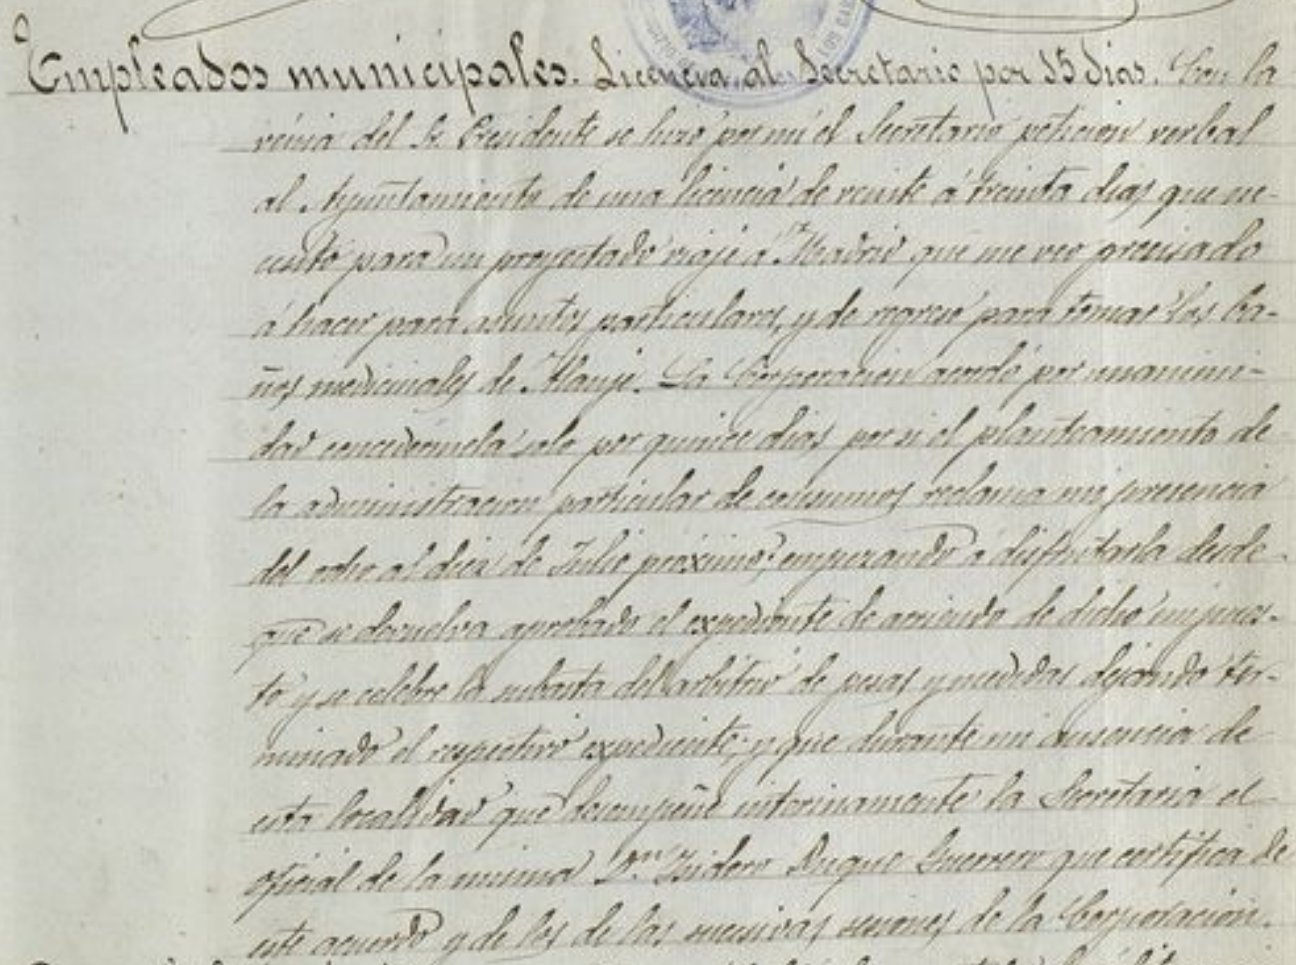 Empleados municipales. Licencia al Secretario por 15 dias. Con la
venia del Sr. Presidente se hizo por mí el Secretario peticion verbal
al Ayuntamiento de una licencia de veinte á treinta dias que ne-
cesito para un proyectado viaje á Madrid que me veo precisado
á hacer para asuntos particulares, y de regreso para tomar los ba-
ños medicinales de Alanje. La Corporacion acordó por unanimi-
dad concedermela solo por quince dias por si el planteamiento de
la administracion particular de consumos reclama mi presencia
del ocho al diez de Julio próximo; empezando á disfrutarla desde
que se devuelva aprobado el expediente de arriendo de dicho impues-
to y se celebre la subasta del arbitrio de pesas y medidas dejando ter-
minado el respectivo expediente; y que durante mi ausencia de
esta localidad que desempeñe interinamente la Secretaria el
oficial de la misma Dn. Isidoro Duque Guerrero que certifica de
este acuerdo y de los de las sucesivas sesiones de la Corporacion.